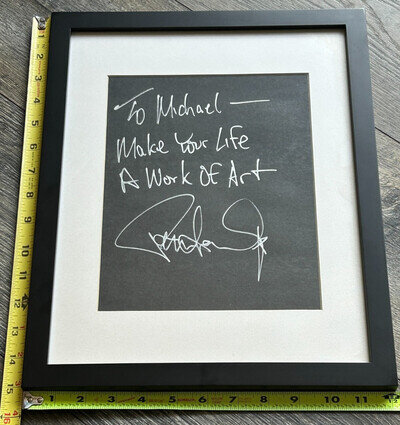 To Michael —
Make Your Life
A Work Of Art
1 2 3 4 5 6 7 8 9 10 11 12 13 14 15 16
1 2 3 4 5 6 7 8 9 10 11